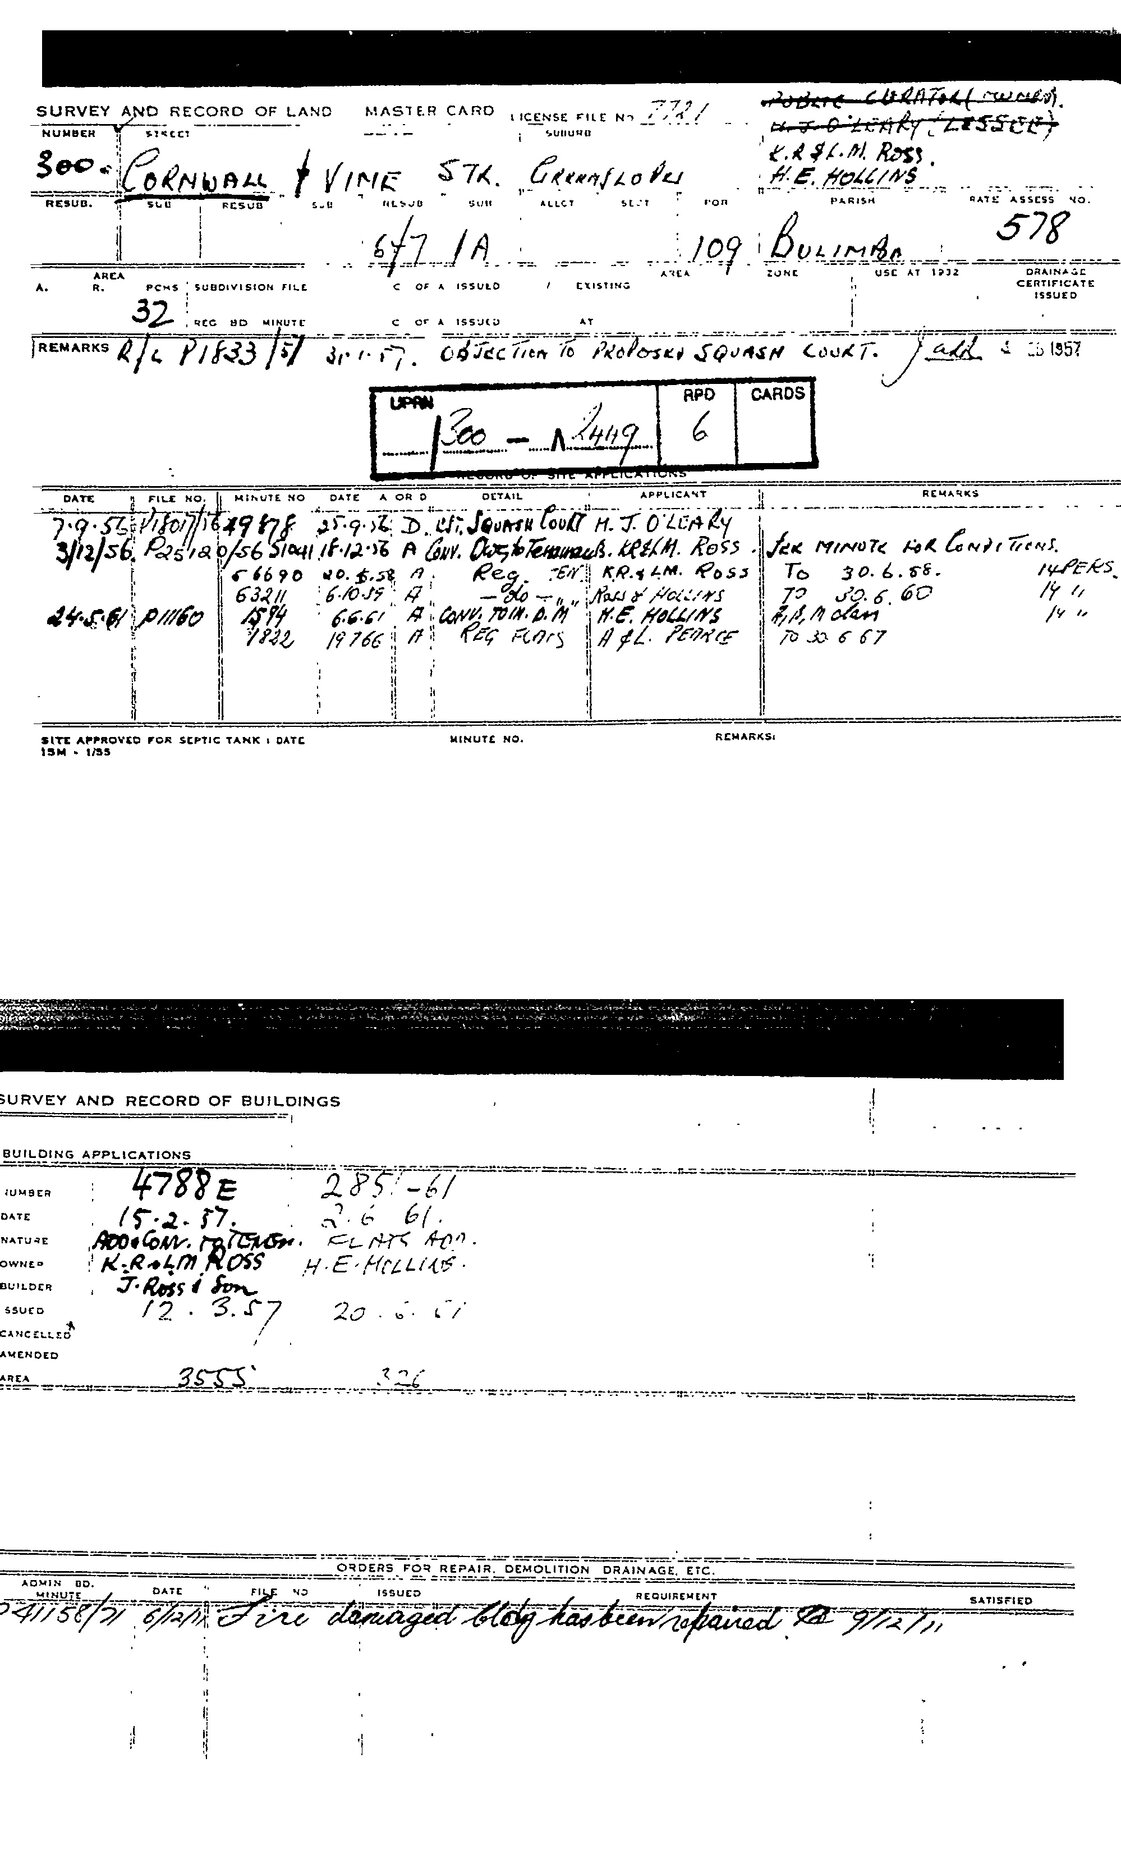 SURVEY AND RECORD OF LAND MASTER CARD LICENSE FILE No 7721 PUBLIC CURATOR (OWNER).
NUMBER STREET SUBURB H. J. O'LEARY (LESSEE)
300. CORNWALL & VINE STR. GREENSLOPES K.R & L.M. ROSS.
H.E. HOLLINS
RESUB. SUB RESUB SUB RESUB SUB ALLCT SECT POR PARISH RATE ASSESS NO.
6/7 1A 109 BULIMBA 578
AREA AREA ZONE USE AT 1932 DRAINAGE CERTIFICATE ISSUED
A. R. PCHS SUBDIVISION FILE C OF A ISSUED / EXISTING
32 REG BD MINUTE C OF A ISSUED AT
REMARKS R/L P1833/57 31.1.57. OBJECTION TO PROPOSED SQUASH COURT. 1957
UPRN RPD CARDS
300 - 2449 6
RECORD OF SITE APPLICATIONS
DATE FILE NO. MINUTE NO DATE A OR D DETAIL APPLICANT REMARKS
7.9.56 P18017/56 49878 25.9.56 D. EST. SQUASH COURT H. J. O'LEARY
3/12/56. P25120/56 51041 18.12.56 A CONV. K.R & L.M. ROSS. PER MINUTE FOR CONDITIONS.
56690 20.5.58 A. Reg. TEN K.R. & L.M. ROSS TO 30.6.58. 14 PERS.
63211 6.10.59 A — do — „ „ ROSS & HOLLINS TO 30.6.60 14 "
24.5.61 P11160 1594 6.6.61 A CONV. TO M.D.M H.E. HOLLINS 14 "
1822 19 7 66 A REG FLATS A & L. PEARCE TO 30 6 67
SITE APPROVED FOR SEPTIC TANK : DATE MINUTE NO. REMARKS:
15M - 1/55
SURVEY AND RECORD OF BUILDINGS
BUILDING APPLICATIONS
NUMBER 4788E 2851-61
DATE 15.2.57. 2.6 61.
NATURE ADD & CONV. TO TENEM. FLATS ADD.
OWNER K.R & LM ROSS H.E. HOLLINS.
BUILDER J. Ross & Son
ISSUED 12.3.57 20.6.61
CANCELLED
AMENDED
AREA 3555 326
ORDERS FOR REPAIR, DEMOLITION DRAINAGE, ETC.
ADMIN BD. MINUTE DATE FILE NO ISSUED REQUIREMENT SATISFIED
41158/71 6/12/71 Fire damaged bldg has been repaired. 9/12/71